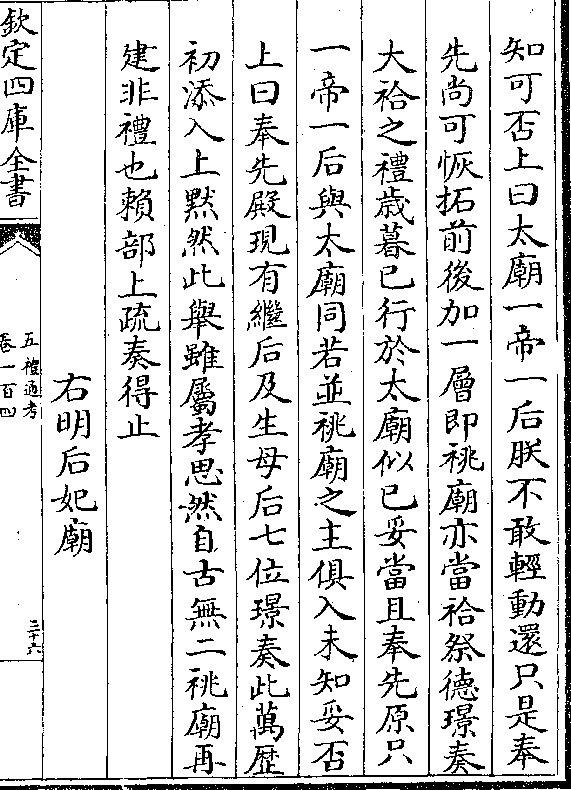 知可否上曰太廟一帝一后朕不敢輕動還只是奉
先尚可恢拓前後加一層即祧廟亦當祫祭德璟奏
大祫之禮歳暮已行於太廟似已妥當且奉先原只
一帝一后與太廟同若並祧廟之主俱入未知妥否
上曰奉先殿現有繼后及生母后七位璟奏此萬歴
初添入上黙然此舉雖屬孝思然自古無二祧廟再
建非禮也賴部上疏奏得止
右明后妃廟
欽定四庫全書
五禮通考
卷一百四
二十六